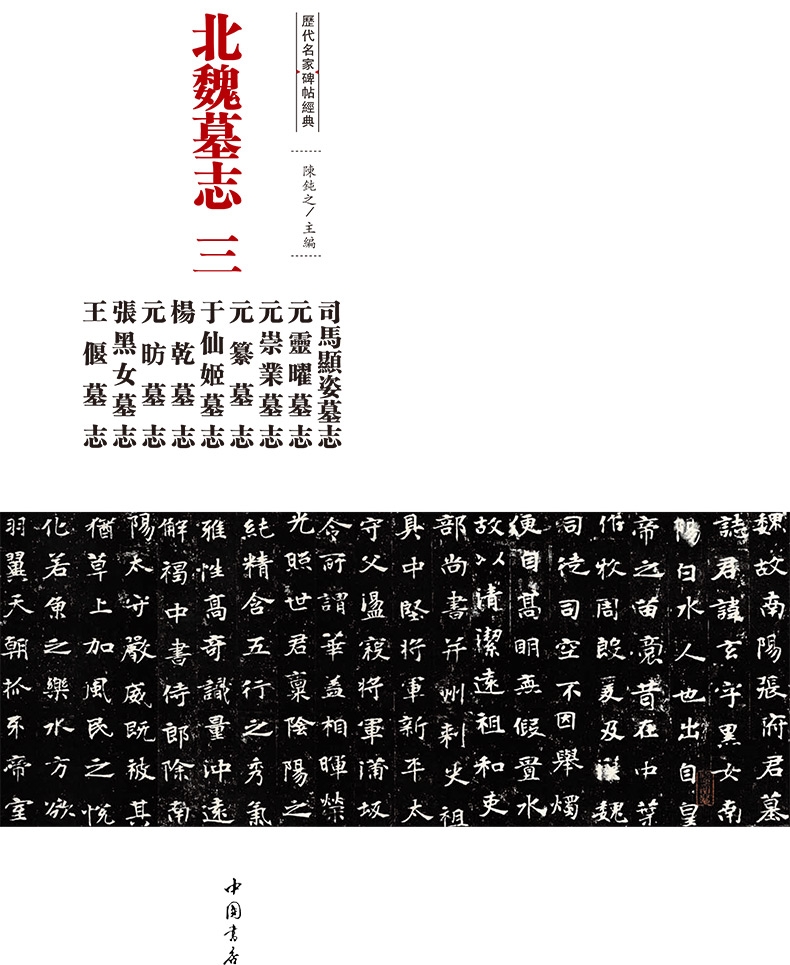 歷代名家碑帖經典
陳鈍之/主編
北魏墓志 三
司馬顯姿墓志
元靈曜墓志
元崇業墓志
元纂墓志
于仙姬墓志
楊乾墓志
元昉墓志
張黑女墓志
王偃墓志
魏故南陽張府君墓
誌君諱玄字黑女南
陽白水人也出自皇
帝之苗裔昔在中葉
作牧周殷爰及漢魏
司徒司空不因舉燭
便自高明無假置水
故以清潔遠祖和吏
部尚書并州刺史祖
具中堅將軍新平太
守父盪寇將軍蒲坂
令所謂華蓋相暉榮
光照世君稟陰陽之
純精含五行之秀氣
雅性高奇識量沖遠
解褐中書侍郎除南
陽太守嚴威既被其
猶草上加風民之悅
化若魚之樂水方欲
羽翼天朝抓牙帝室
中國書店